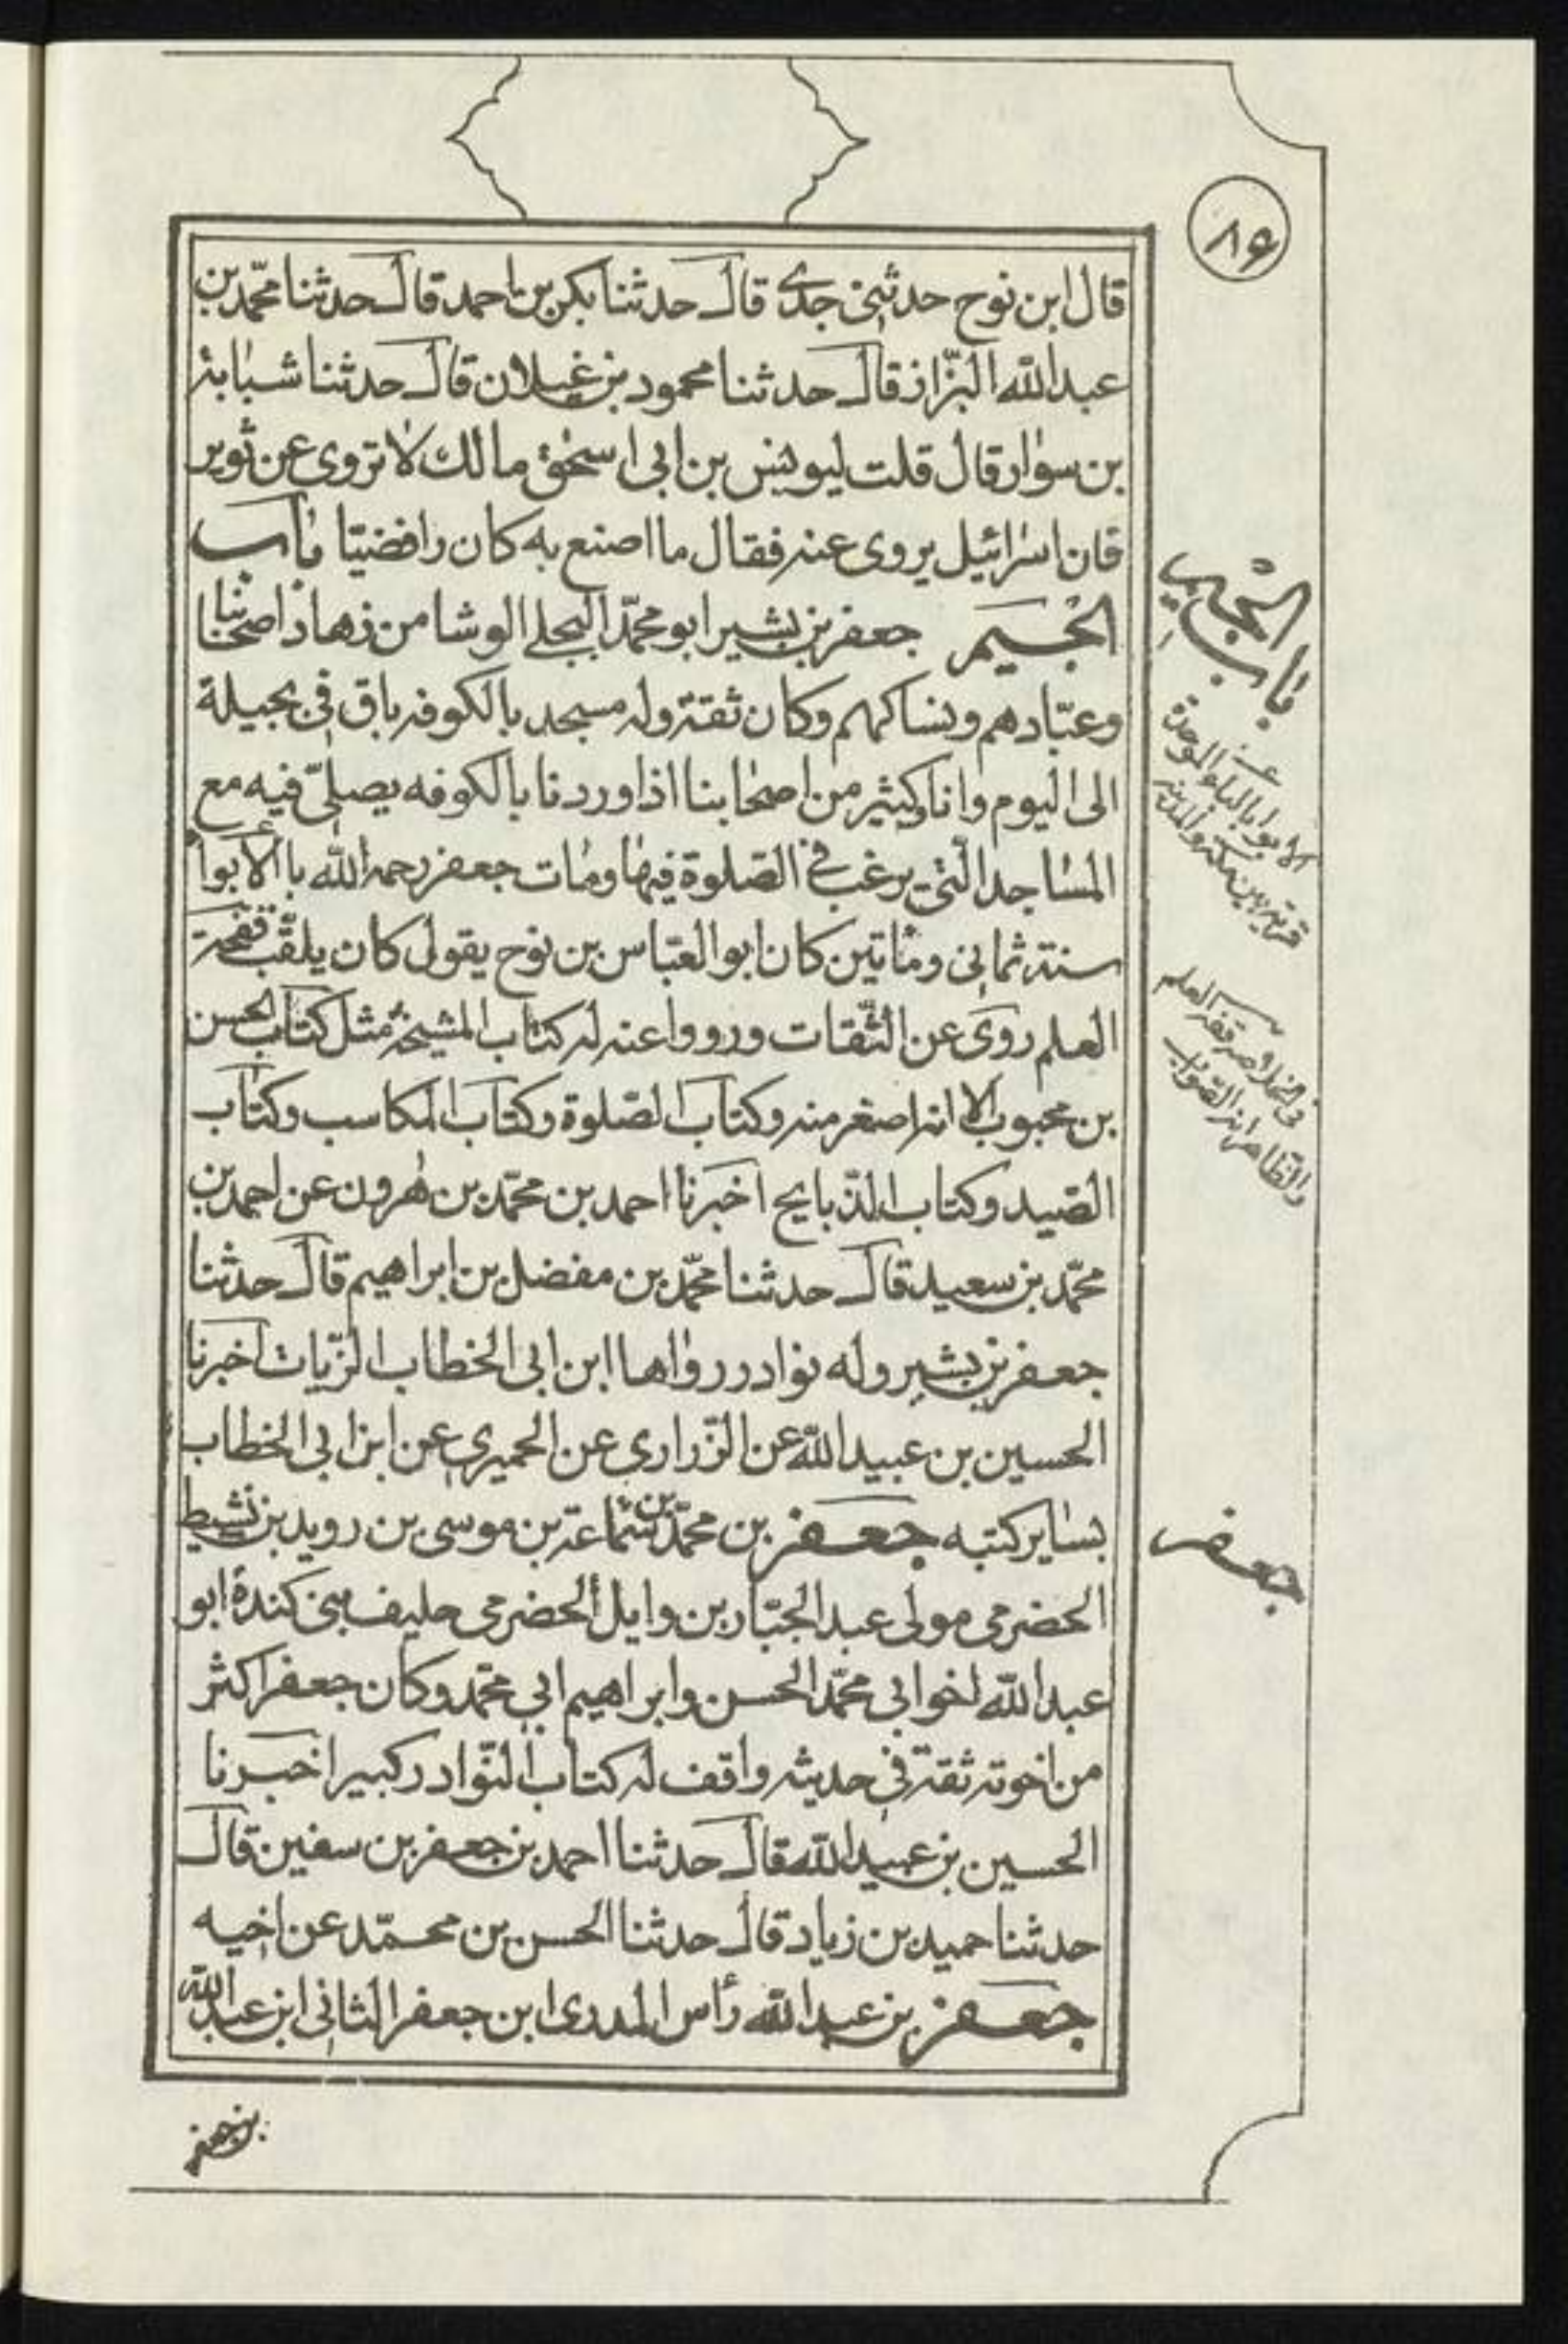 ٨٦
قال ابن نوح حدثنی جدی قال حدثنا بکر بن احمد قال حدثنا محمّد بن
عبدالله البزّاز قال حدثنا محمود بن غیلان قال حدثنا شبابة
بن سوار قال قلت لیونس بن ابی اسحٰق مالک لا تروی عن ثویر
فان اسرائیل یروی عنه فقال ما اصنع به کان رافضیّا باب
الجیم جعفر بن بشیر ابو محمّد البجلی الوشا من زهاد اصحابنا
وعبّادهم ونساکهم وکان ثقة وله مسجد بالکوفه باق فی بجیلة
الی الیوم وانا وکثیر من اصحابنا اذا وردنا بالکوفه یصلّی فیه مع
المساجد الّتی یرغب فی الصّلوة فیها ومات جعفر رحمه الله بالأبواء
سنة ثمانی ومأتین کان ابو العبّاس بن نوح یقول کان یلقّب فقحة
العلم روی عن الثّقات ورووا عنه له کتاب المشیخة مثل کتاب الحسن
بن محبوب الا انه اصغر منه وکتاب الصّلوة وکتاب المکاسب وکتاب
الصّید وکتاب الذّبایح اخبرنا احمد بن محمّد بن هٰرون عن احمد بن
محمّد بن سعید قال حدثنا محمّد بن مفضل بن ابراهیم قال حدثنا
جعفر بن بشیر وله نوادر رواها ابن ابی الخطاب الزّیات اخبرنا
الحسین بن عبیدالله عن الزّراری عن الحمیری عن ابن ابی الخطاب
بسایر کتبه جعفر بن محمّد بن سماعة بن موسی بن روید بن نشیط
الحضرمی مولی عبد الجبّار بن وایل الحضرمی حلیف بنی کندة ابو
عبدالله اخو ابی محمّد الحسن وابراهیم ابی محمّد وکان جعفر اکثر
من اخوته ثقة فی حدیثه واقف له کتاب النّوادر کبیر اخبرنا
الحسین بن عبیدالله قال حدثنا احمد بن جعفر بن سفین قال
حدثنا حمید بن زیاد قال حدثنا الحسن بن محمّد عن اخیه
جعفر بن عبدالله رأس المدری ابن جعفر الثانی ابن عبدالله
بن جعفر
باب الجیم
الابوا بالباء الموحدة
قریة بین مکة والمدینة
جعفر